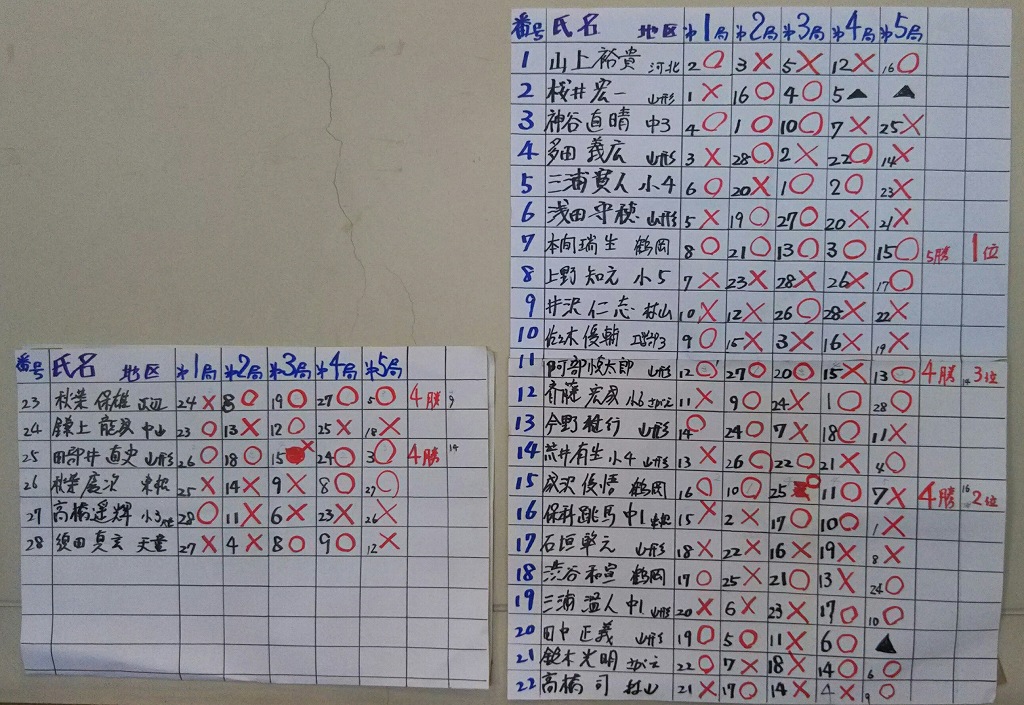 番号 氏名 地区 オ1局 オ2局 オ3局 オ4局 オ5局
1 山上裕貴 河北 2○ 3× 5× 12× 16○
2 桜井宏一 山形 1× 16○ 4○ 5▲ ▲
3 神谷直晴 中3 4○ 1○ 10○ 7× 25×
4 多田義広 山形 3× 28○ 2× 22○ 14×
5 三浦賢人 小4 6○ 20× 1○ 2○ 23×
6 浅田守穂 山形 5× 19○ 27○ 20× 21×
7 本間瑞生 鶴岡 8○ 21○ 13○ 3○ 15○ 5勝 1位
8 上野知元 小5 7× 23× 28× 26× 17○
9 井沢仁志 村山 10× 12× 26○ 28× 22×
10 佐々木優翰 9○ 15× 3× 16× 19×
11 阿部慎太郎 山形 12○ 27○ 20○ 15× 13○ 4勝 14 3位
12 斉藤宏 小6 11× 9○ 24× 1○ 28○
13 今野雄行 山形 14○ 24○ 7× 18○ 11×
14 荒井有生 小4 山形 13× 26○ 22○ 21× 4○
15 家沢優悟 鶴岡 16○ 10○ 25○ 11○ 7× 4勝 16 2位
16 保科跳馬 中1 15× 2× 17○ 10○ 1×
17 石垣 元 山形 18× 22× 16× 19× 8×
18 渋谷和宣 鶴岡 17○ 25× 21○ 13× 24○
19 三浦 人 中1 山形 20× 6× 23× 17○ 10○
20 田中正義 山形 19○ 5○ 11× 6○ ▲
21 鈴木光明 22○ 7× 18× 14○ 6○
22 高橋司 村山 21× 17○ 14× 4× 9○
番号 氏名 地区 オ1局 オ2局 オ3局 オ4局 オ5局
23 秋葉保雄 24× 8○ 19○ 27○ 5○ 4勝 9
24 鎌上龍 中山 23○ 13× 12○ 25× 18×
25 田部井直史 山形 26○ 18○ 15× 24○ 3○ 4勝 14
26 秋葉慶次 東根 25× 14× 9× 8○ 27○
27 高橋遥輝 小3 28○ 11× 6× 23× 26×
28 須田真玄 天童 27× 4× 8○ 9○ 12×